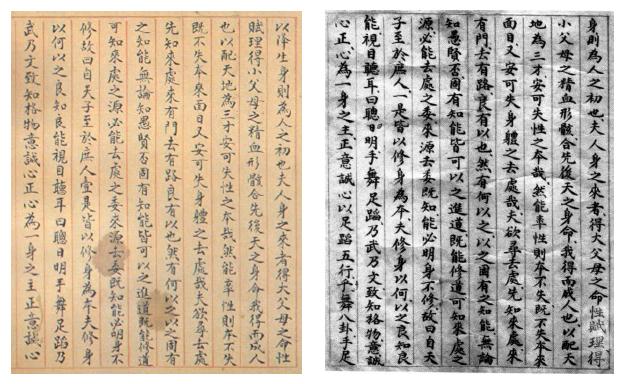 以降生身則為人之初也夫人身之來者得大父母之命性
賦理得小父母之精血形骸合先後天之身命我得而成人
也以配天地為三才安可失性之本哉然能率性則本不失
既不失本來面目又安可失身體之去處哉夫欲尋去處
先知來處來有門去有路良有以也然有何以之以之固有
之知能無論知愚賢否固有知能皆可以之進道既能修道
可知來處之源必能去處之委來源去委既知能必明身不
修故曰自天子至於庶人壹是皆以修身為本夫修身
以何以之良知良能視目聽耳曰聰曰明手舞足蹈乃
武乃文致知格物意誠心正心為一身之主正意誠心
身則為人之初也夫人身之來者得大父母之命性賦理得
小父母之精血形骸合先後天之身命我得而成人也以配天
地為三才安可失性之本哉然能率性則本不失既不失本來
面目又安可失身體之去處哉夫欲尋去處先知來處來
有門去有路良有以也然有何以之以之固有之知能無論
知愚賢否固有知能皆可以之進道既能修道可知來處之
源必能去處之委來源去委既知能必明身不修故曰自天
子至於庶人一是皆以修身為本夫修身以何以之良知良
能視目聽耳曰聰曰明手舞足蹈乃武乃文致知格物意誠
心正心為一身之主正意誠心以足蹈五行手舞八卦手足